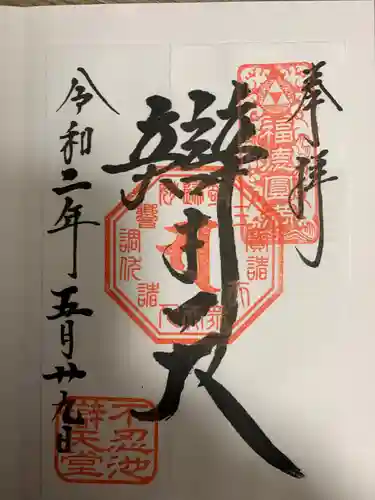 奉拝
福慶圓満
辯才天
令和二年五月廿九日
不忍池
辯天堂